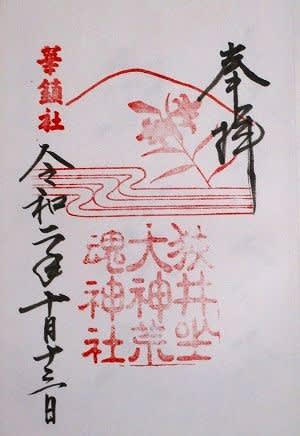 奉拝
狭井坐
大神荒
魂神社
華鎮社
令和二年十月十三日